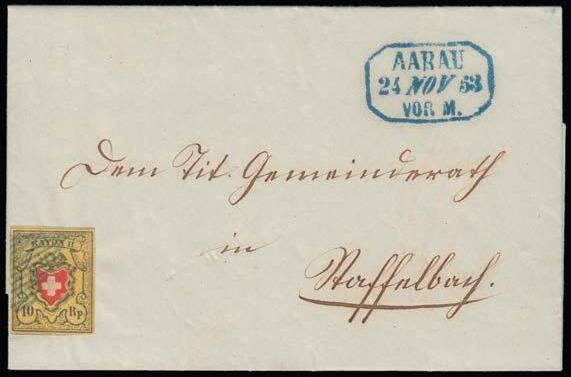 AARAU
24 NOV 53
VOR M.
Dem Tit. Gemeinderath
in
Staffelbach.
RAYON II.
10 Rp